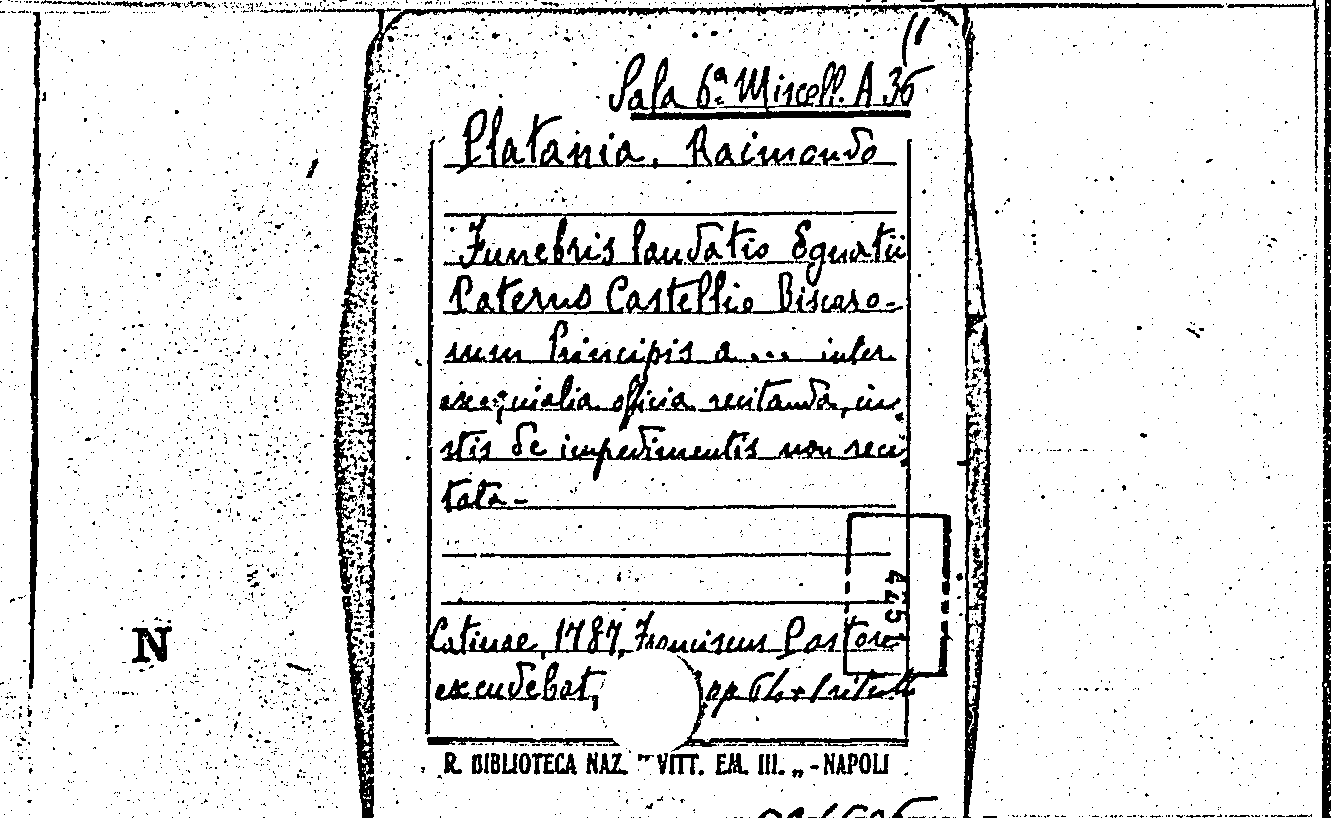 (1
Sala 6ª Miscell. A 36
Platania, Raimondo
Funebris laudatio Egnatii
Paternò Castellio Biscaro-
rum Principis a ... inter
exequialia officia recitanda, iu-
stis de impedimentis non reci
tata-
4451
Catinae, 1787, Franciscus Pastore
excudebat,
N
R. BIBLIOTECA NAZ. "VITT. EM. III. „ - NAPOLI